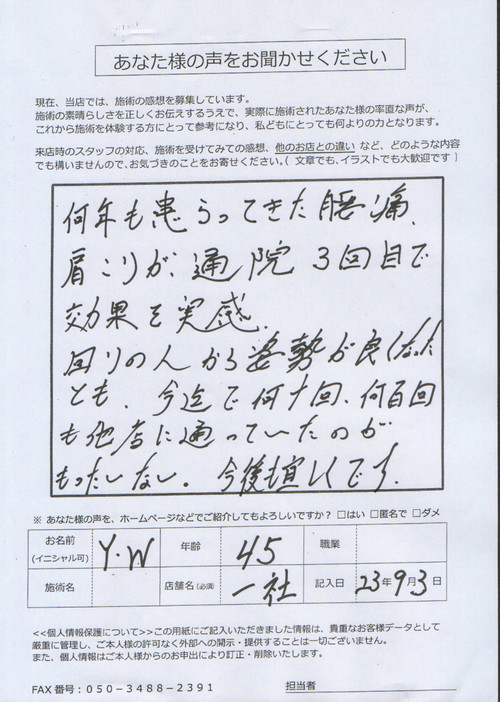 あなた様の声をお聞かせください
現在、当店では、施術の感想を募集しています。
施術の素晴らしさを正しくお伝えするうえで、実際に施術されたあなた様の率直な声が、
これから施術を体験する方にとって参考になり、私どもにとっても何よりの力となります。
来店時のスタッフの対応、施術を受けてみての感想、他のお店との違い など、どのような内容
でも構いませんので、お気づきのことをお寄せください。( 文章でも、イラストでも大歓迎です )
何年も患らってきた腰痛、
肩こりが、通院 3回目で
効果を実感。
回りの人から姿勢が良くなった
とも。今迄で何十回、何百回
も他店に通っていたのが
もったいない。今後も宜しくです。
※ あなた様の声を、ホームページなどでご紹介してもよろしいですか？ □はい □匿名で □ダメ
お名前 (イニシャル可) Y.W 年齢 45 職業
施術名 店舗名 (必須) 一社 記入日 23年9月3日
<<個人情報保護について>>この用紙にご記入いただきました情報は、貴重なお客様データとして
厳重に管理し、ご本人様の許可なく外部への開示・提供することは一切ございません。
また、個人情報はご本人様からのお申出により訂正・削除いたします。
FAX 番号：050-3488-2391 担当者